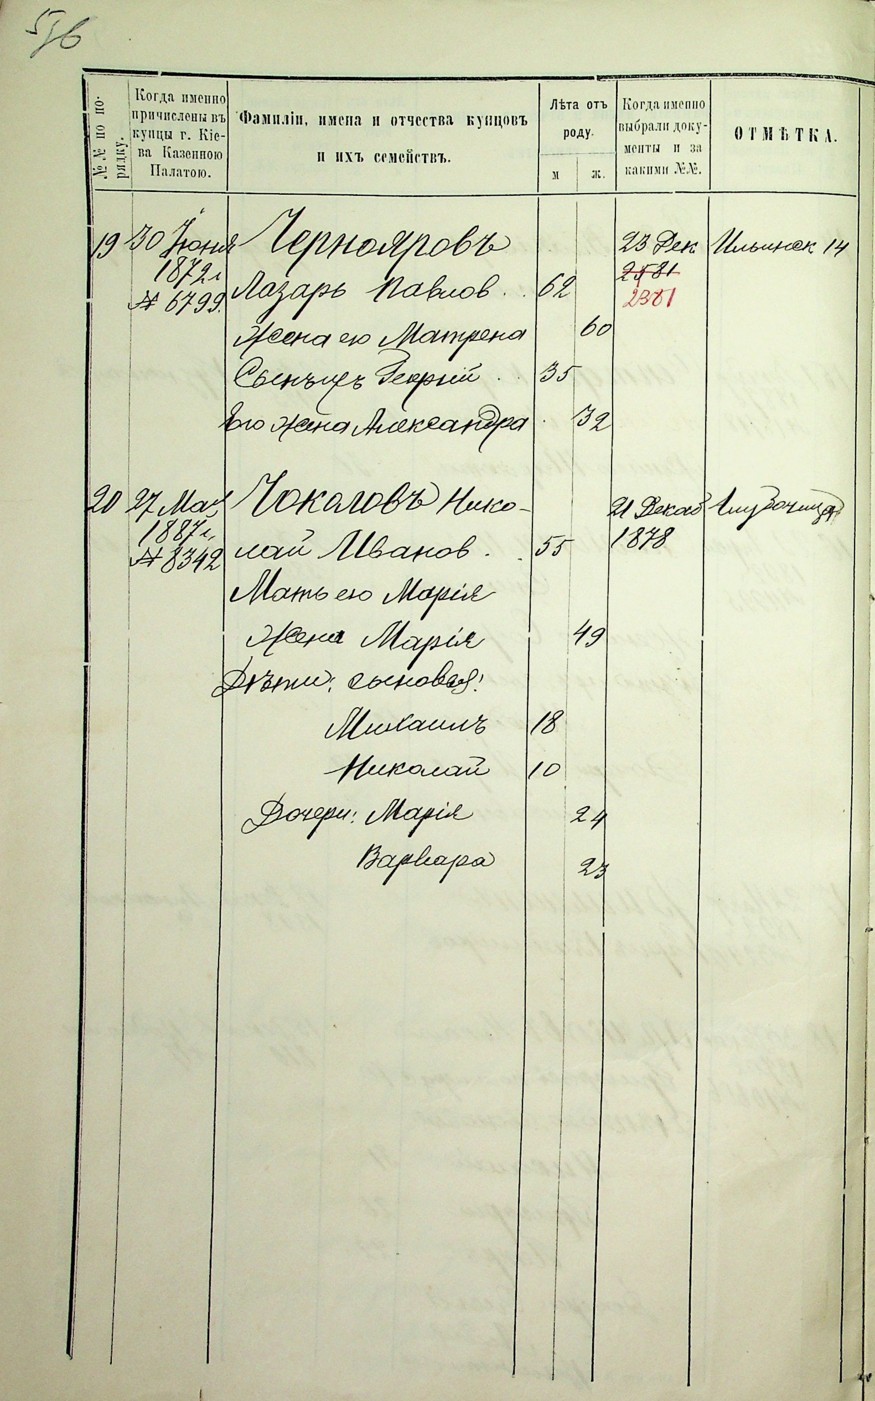 516
№№ по по-
рядку.
Когда именно
причислены въ
купцы г. Кіе-
ва Казенною
Палатою.
Фамиліи, имена и отчества купцовъ
и ихъ семействъ.
Лѣта отъ
роду.
м
ж.
Когда именно
выбрали доку-
менты и за
какими №№.
ОТМѢТКА.
19 30 Іюня Чернояровъ 23 Дек Ильинск 14
1872 г. 2581
№ 6799. Лазарь Павлов . . 62 2381
Жена его Матрена 60
Сынъ ихъ Георгій . . 35
Его жена Александра . 32
20 27 Мая Чоколовъ Нико- 21 Декаб Глубочица
1887 г. 1878
№ 8342 лай Иванов . . 55
Мать его Марія
Жена Марія 49
Дѣти: сыновья:
Михаилъ 18
Николай 10
Дочери: Марія 24
Варвара 23